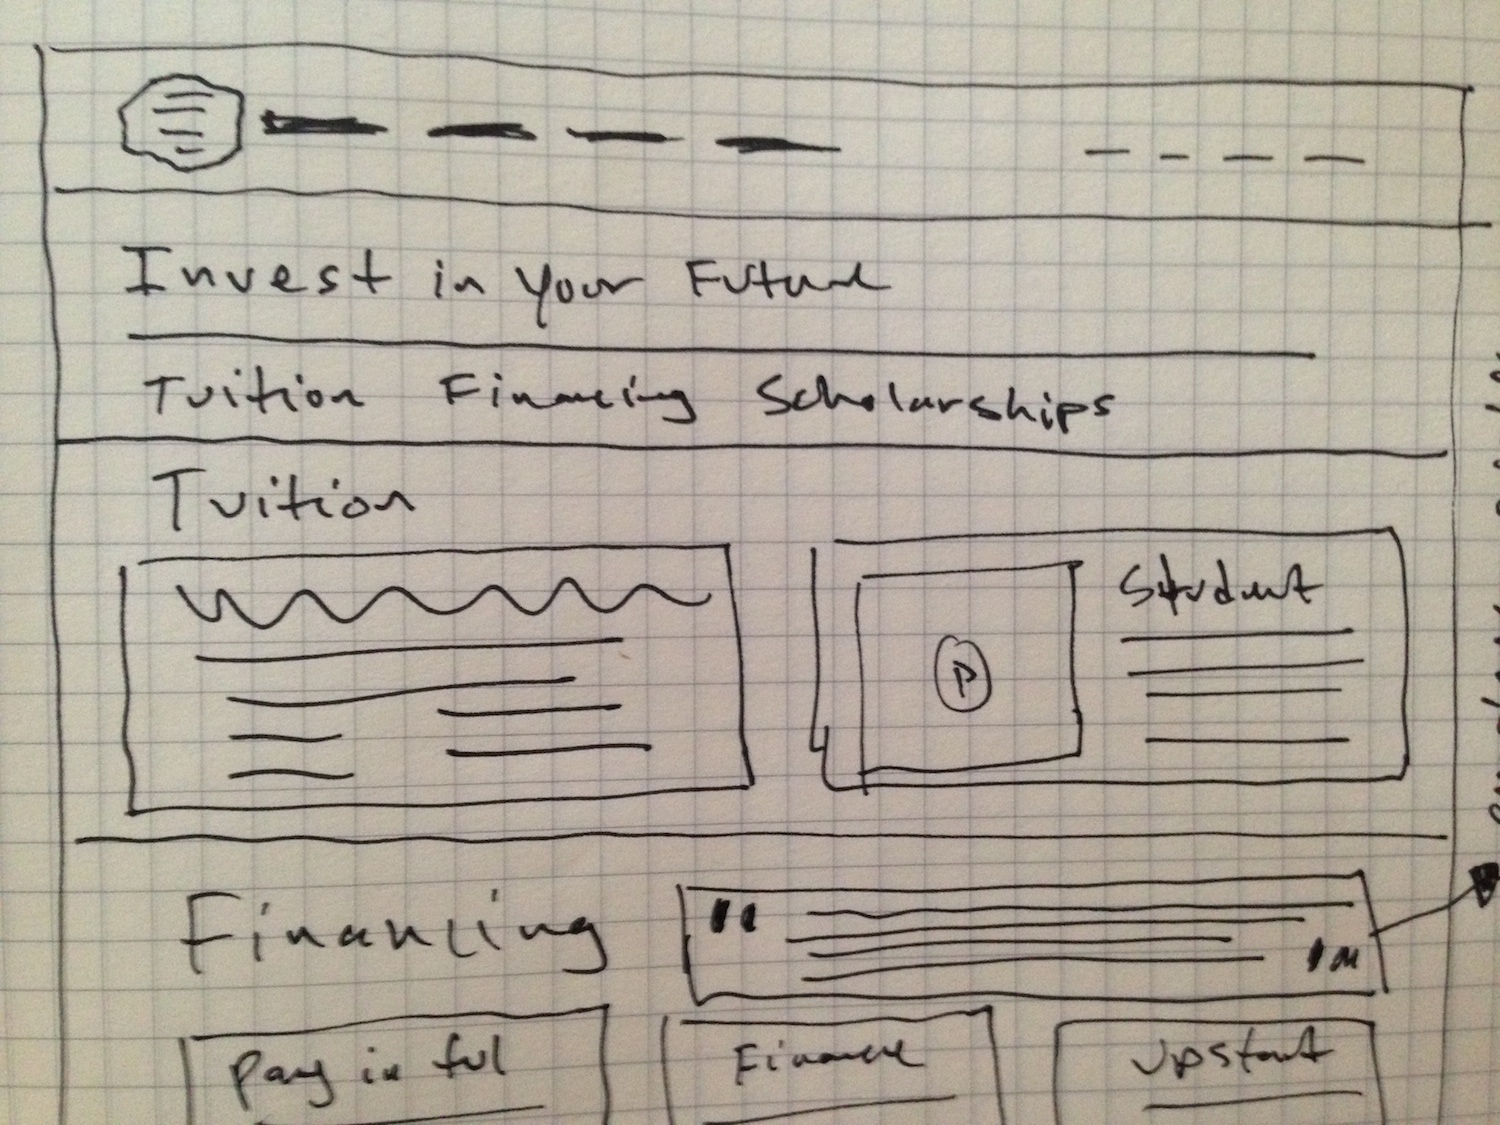 Invest in your Future
Tuition Financing Scholarships
Tuition
Student
P
Financing
" "
Pay in ful
Finance
Upstart